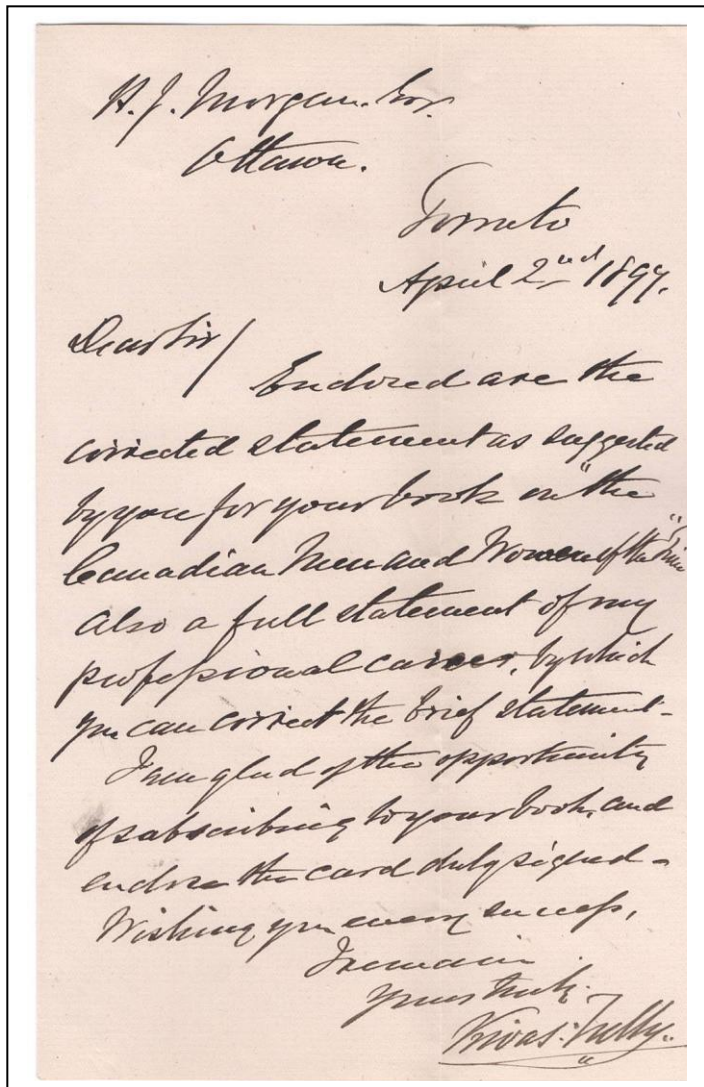 H. J. Morgan. Esq.
Ottawa.
Toronto
April 2nd 1897.
Dear Sir/
Enclosed are the
corrected statement as suggested
by you for your book on "the
Canadian Men and Women of the Time"
Also a full statement of my
professional career, by which
you can correct the brief statement-
I am glad of the opportunity
of subscribing to your book, and
enclose the card duly signed-
Wishing you every success,
I remain
Yours truly.
Kivas: Tully.